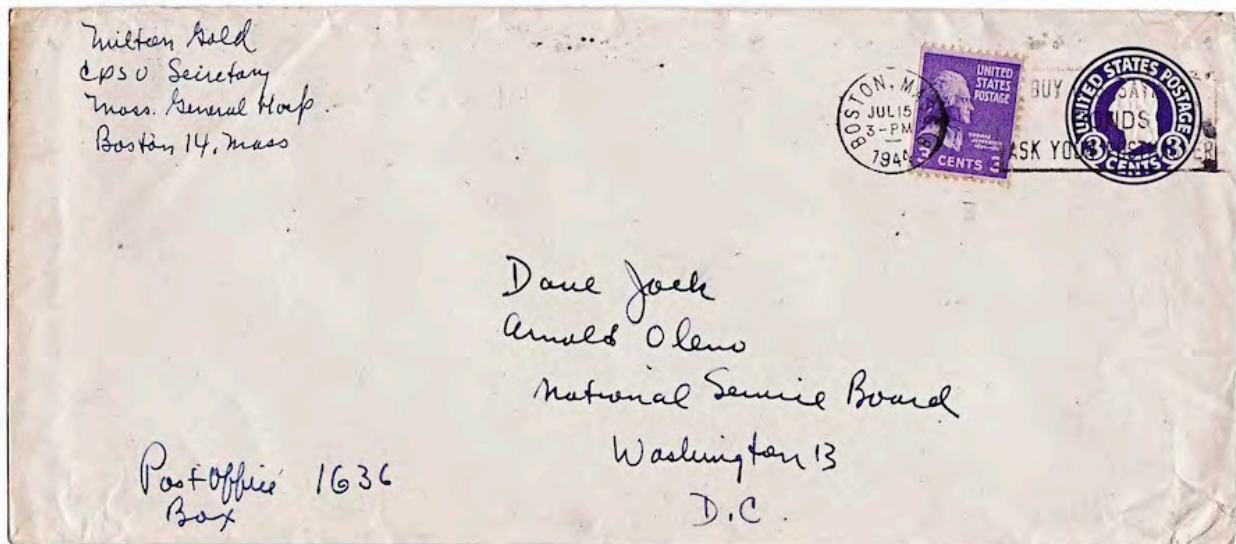 Milton Gold
CPSU Secretary
Mass. General Hosp.
Boston 14, Mass
BOSTON, MASS
JUL 15
3-PM
1944
UNITED
STATES
POSTAGE
3 CENTS 3
BUY
ASK YOUR
UNITED STATES POSTAGE
3 CENTS 3
Dave Jack
Arnold Oleno
National Service Board
Washington 13
D.C.
Post Office 1636
Box